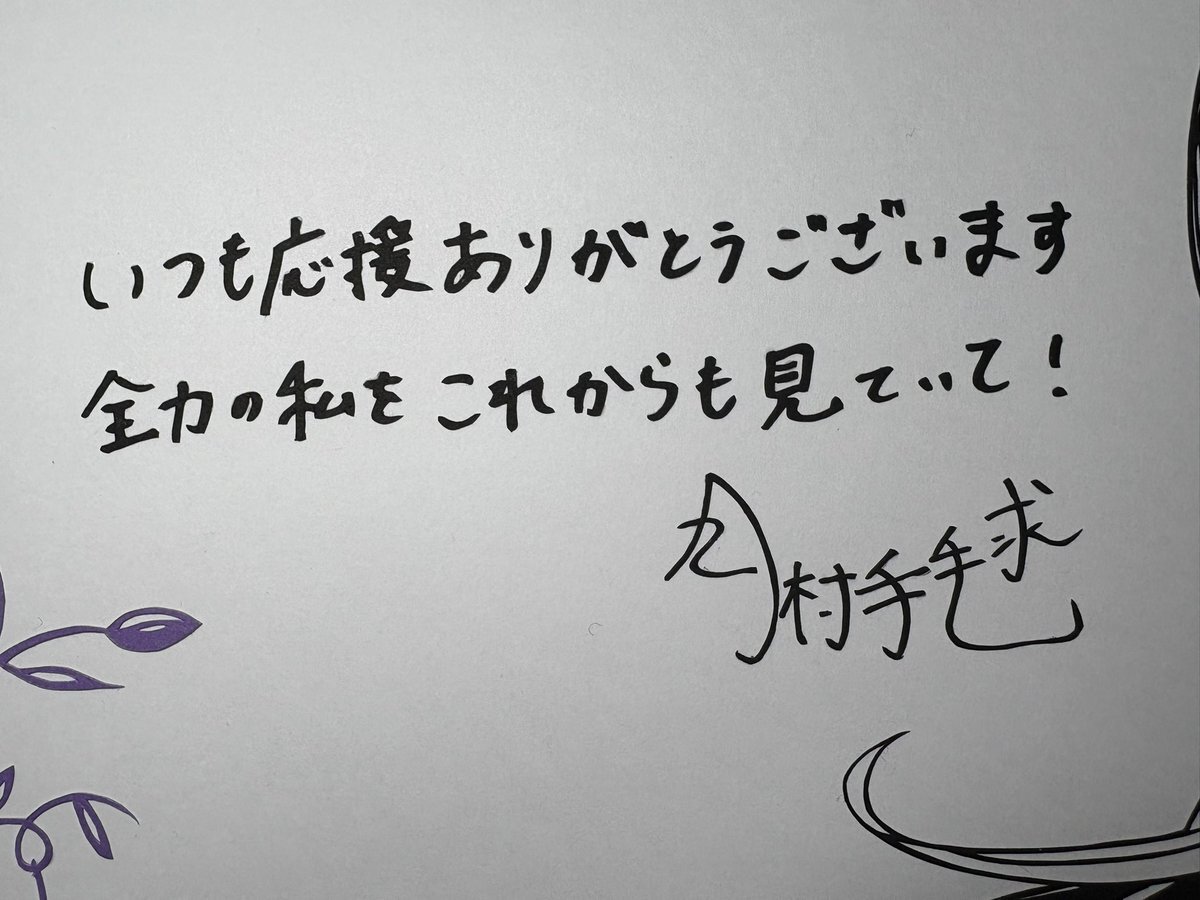 いつも応援ありがとうございます
全力の私をこれからも見ていて!
月村手毬